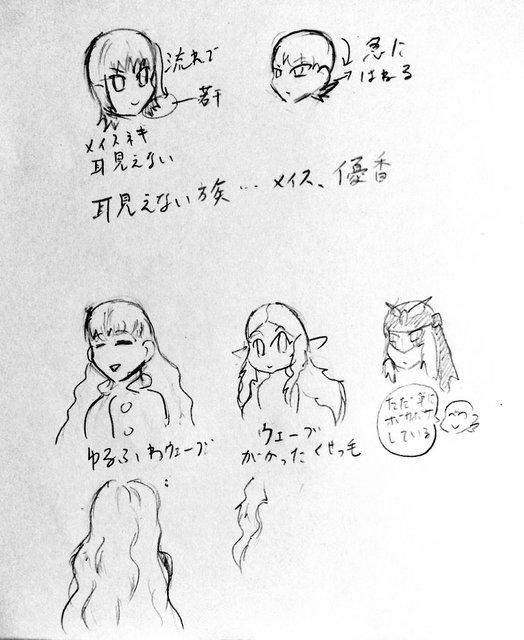 流れで
若干
急に
はねる
メイスネキ
耳見えない
耳見えない族…メイス、優香
ゆるふわウェーブ
ウェーブ
がかったくせっ毛
ただ単に
ボサボサ
している